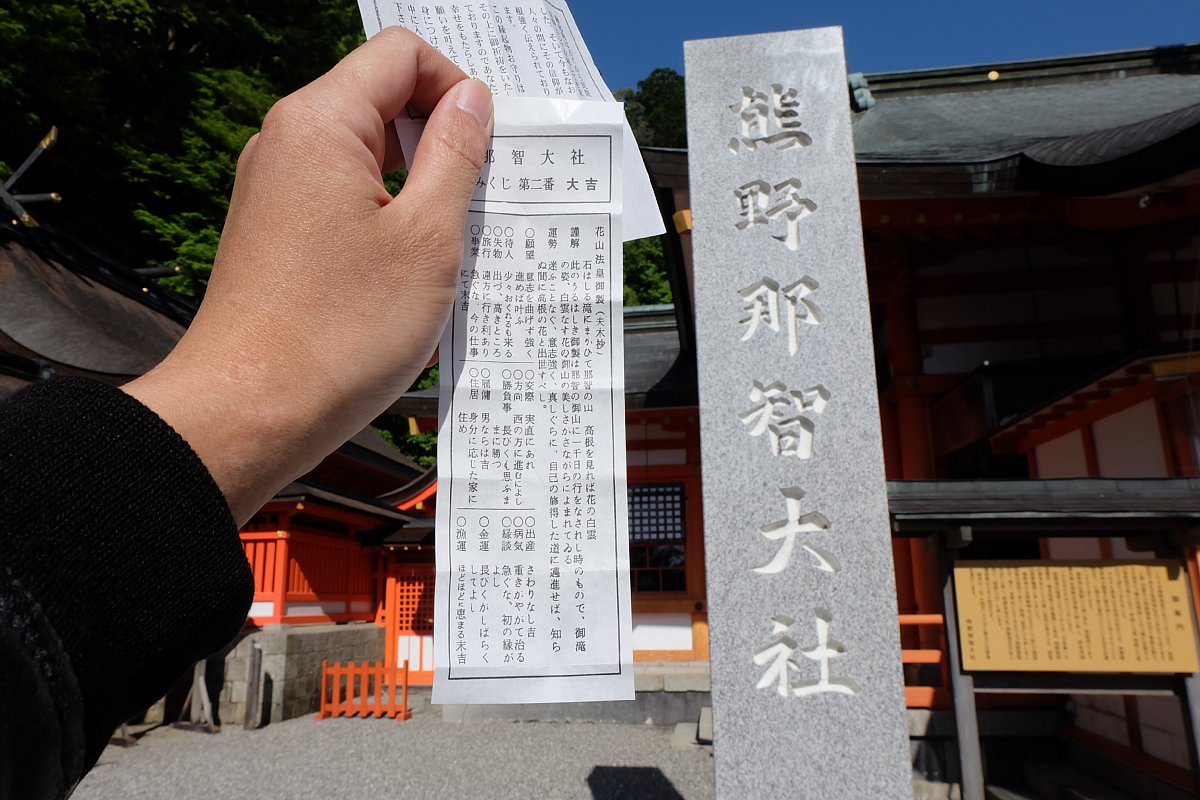 した。そして今もなお
人々の間にその信仰が
根強く伝えられており
ます。
この縁起物お守りは
その上に御祈祷をいたし
ておりますのであなた
幸せをもたらしあ
願いを叶えて
身につけ
中に入
下さ
那智大社
みくじ 第二番 大吉
花山法皇御製(夫木抄)
石はしる滝にまがひて那智の山 高根を見れば花の白雲
謹解 此のうるはしき御製は那智の御山に一千日の行をなされし時のもので、御滝
の姿、白雲なす花の御山の美しさがさながらによまれてゐる
運勢 迷ふことなく、意志強く、真しぐらに、自己の修得した道に邁進せば、知ら
ぬ間に高根の花と出世すべし。
○願望 意志を曲げず強く
進めば叶ふ
○待人 少々おくれるも来る
○失物 出づ、高きところ
○旅行 遠方に行き利あり
○事業 急ぐな、今の仕事
にて末吉
○交際 実直にあれ
○方向 西の方に進むによし
○勝負事 長びくも思ふま
まに勝つ
○雇傭 男ならば吉
○住居 身分に応じた家に
住め
○出産 さわりなし吉
○病気 重きがやがて治る
○縁談 急ぐな、初の縁が
よし
○金運 長ひくがしばらく
してよし
○漁運 ほどほどに恵まる末吉
熊野那智大社